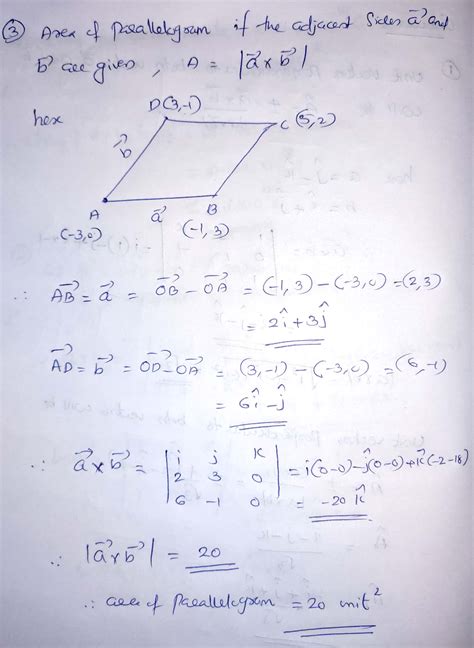 ③ Area of Parallelogram if the adjacent Sides a⃗ and
b⃗ are given, A = |a⃗ x b⃗|
here
D(3,-1)
C (5,2)
b⃗
A
a⃗
B
(-3,0)
(-1,3)
∴ AB⃗ = a⃗ = OB⃗ - OA⃗ = (-1,3) - (-3,0) = (2,3)
= 2î + 3ĵ
AD⃗ = b⃗ = OD⃗ - OA⃗ = (3,-1) - (-3,0) = (6,-1)
= 6î - ĵ
∴ a⃗ x b⃗ = | i j k
2 3 0
6 -1 0 | = i(0-0) - ĵ(0-0) + k̂(-2-18)
= -20 k̂
∴ |a⃗ x b⃗| = 20
∴ area of Parallelogram = 20 unit²